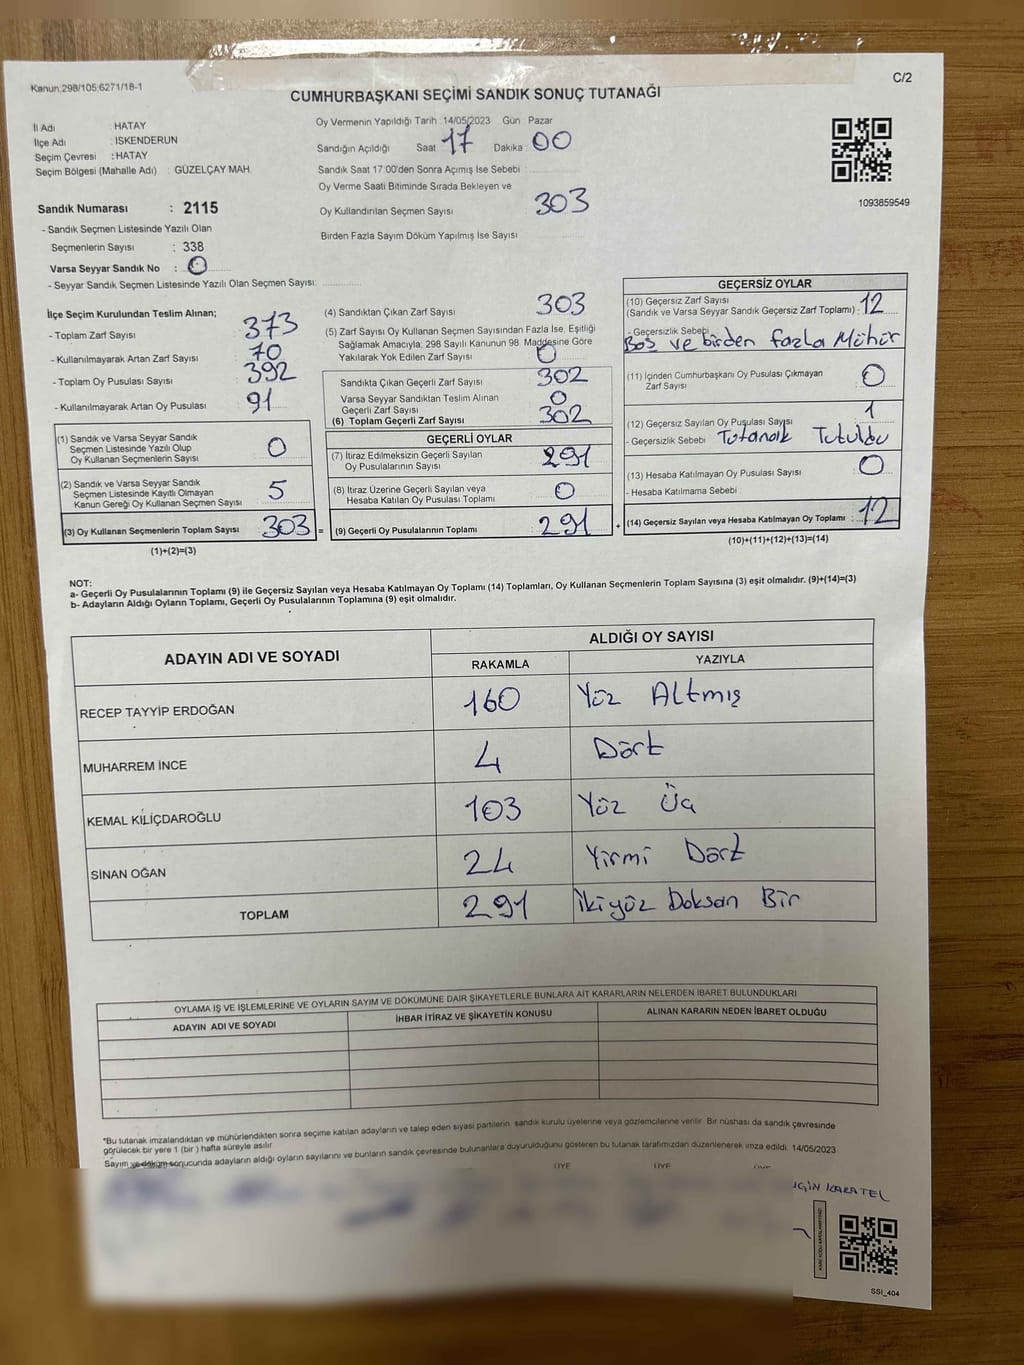 Kanun.298/105;6271/18-1
C/2
CUMHURBAŞKANI SEÇİMİ SANDIK SONUÇ TUTANAĞI
İl Adı : HATAY
İlçe Adı : İSKENDERUN
Seçim Çevresi : HATAY
Seçim Bölgesi (Mahalle Adı) : GÜZELÇAY MAH.
Oy Vermenin Yapıldığı Tarih :14/05/2023 Gün Pazar
Sandığın Açıldığı Saat 17 Dakika : 00
Sandık Saat 17:00'den Sonra Açımış İse Sebebi :
Oy Verme Saati Bitiminde Sırada Bekleyen ve
Oy Kullandırılan Seçmen Sayısı 303
Birden Fazla Sayım Döküm Yapılmış İse Sayısı
1093859549
Sandık Numarası : 2115
- Sandık Seçmen Listesinde Yazılı Olan
Seçmenlerin Sayısı : 338
Varsa Seyyar Sandık No : 0
- Seyyar Sandık Seçmen Listesinde Yazılı Olan Seçmen Sayısı:
İlçe Seçim Kurulundan Teslim Alınan;
- Toplam Zarf Sayısı : 373
- Kullanılmayarak Artan Zarf Sayısı : 70
- Toplam Oy Pusulası Sayısı : 392
- Kullanılmayarak Artan Oy Pusulası : 91
(1) Sandık ve Varsa Seyyar Sandık
Seçmen Listesinde Yazılı Olup
Oy Kullanan Seçmenlerin Sayısı 0
(2) Sandık ve Varsa Seyyar Sandık
Seçmen Listesinde Kayıtlı Olmayan
Kanun Gereği Oy Kullanan Seçmen Sayısı 5
(3) Oy Kullanan Seçmenlerin Toplam Sayısı 303 =
(1)+(2)=(3)
(4) Sandıktan Çıkan Zarf Sayısı 303
(5) Zarf Sayısı Oy Kullanan Seçmen Sayısından Fazla İse, Eşitliği
Sağlamak Amacıyla, 298 Sayılı Kanunun 98. Maddesine Göre
Yakılarak Yok Edilen Zarf Sayısı 0
Sandıkta Çıkan Geçerli Zarf Sayısı 302
Varsa Seyyar Sandıktan Teslim Alınan
Geçerli Zarf Sayısı 0
(6) Toplam Geçerli Zarf Sayısı 302
GEÇERLİ OYLAR
(7) İtiraz Edilmeksizin Geçerli Sayılan
Oy Pusulalarının Sayısı 291
(8) İtiraz Üzerine Geçerli Sayılan veya
Hesaba Katılan Oy Pusulası Toplamı 0
(9) Geçerli Oy Pusulalarının Toplamı 291 +
GEÇERSİZ OYLAR
(10) Geçersiz Zarf Sayısı
(Sandık ve Varsa Seyyar Sandık Geçersiz Zarf Toplamı) : 12
- Geçersizlik Sebebi
Boş ve birden fazla Mühür
(11) İçinden Cumhurbaşkanı Oy Pusulası Çıkmayan
Zarf Sayısı 0
(12) Geçersiz Sayılan Oy Pusulası Sayısı 1
- Geçersizlik Sebebi Tutanak Tutuldu
(13) Hesaba Katılmayan Oy Pusulası Sayısı 0
- Hesaba Katılmama Sebebi
(14) Geçersiz Sayılan veya Hesaba Katılmayan Oy Toplamı : 12
(10)+(11)+(12)+(13)=(14)
NOT:
a- Geçerli Oy Pusulalarının Toplamı (9) ile Geçersiz Sayılan veya Hesaba Katılmayan Oy Toplamı (14) Toplamları, Oy Kullanan Seçmenlerin Toplam Sayısına (3) eşit olmalıdır. (9)+(14)=(3)
b- Adayların Aldığı Oyların Toplamı, Geçerli Oy Pusulalarının Toplamına (9) eşit olmalıdır.
ADAYIN ADI VE SOYADI
ALDIĞI OY SAYISI
RAKAMLA YAZIYLA
RECEP TAYYİP ERDOĞAN 160 Yüz Altmış
MUHARREM İNCE 4 Dört
KEMAL KILIÇDAROĞLU 103 Yüz Üç
SİNAN OĞAN 24 Yirmi Dört
TOPLAM 291 İkiyüz Doksan Bir
OYLAMA İŞ VE İŞLEMLERİNE VE OYLARIN SAYIM VE DÖKÜMÜNE DAİR ŞİKAYETLERLE BUNLARA AİT KARARLARIN NELERDEN İBARET BULUNDUKLARI
ADAYIN ADI VE SOYADI İHBAR İTİRAZ VE ŞİKAYETİN KONUSU ALINAN KARARIN NEDEN İBARET OLDUĞU
*Bu tutanak imzalandıktan ve mühürlendikten sonra seçime katılan adayların ve talep eden siyasi partilerin sandık kurulu üyelerine veya gözlemcilerine verilir. Bir nüshası da sandık çevresinde
görülecek bir yere 1 (bir ) hafta süreyle asılır
Sayım ve döküm sonucunda adayların aldığı oyların sayılarını ve bunların sandık çevresinde bulunanlara duyurulduğunu gösteren bu tutanak tarafımızdan düzenlenerek imza edildi. 14/05/2023
ÜYE ÜYE
KARATEL
SSI_404